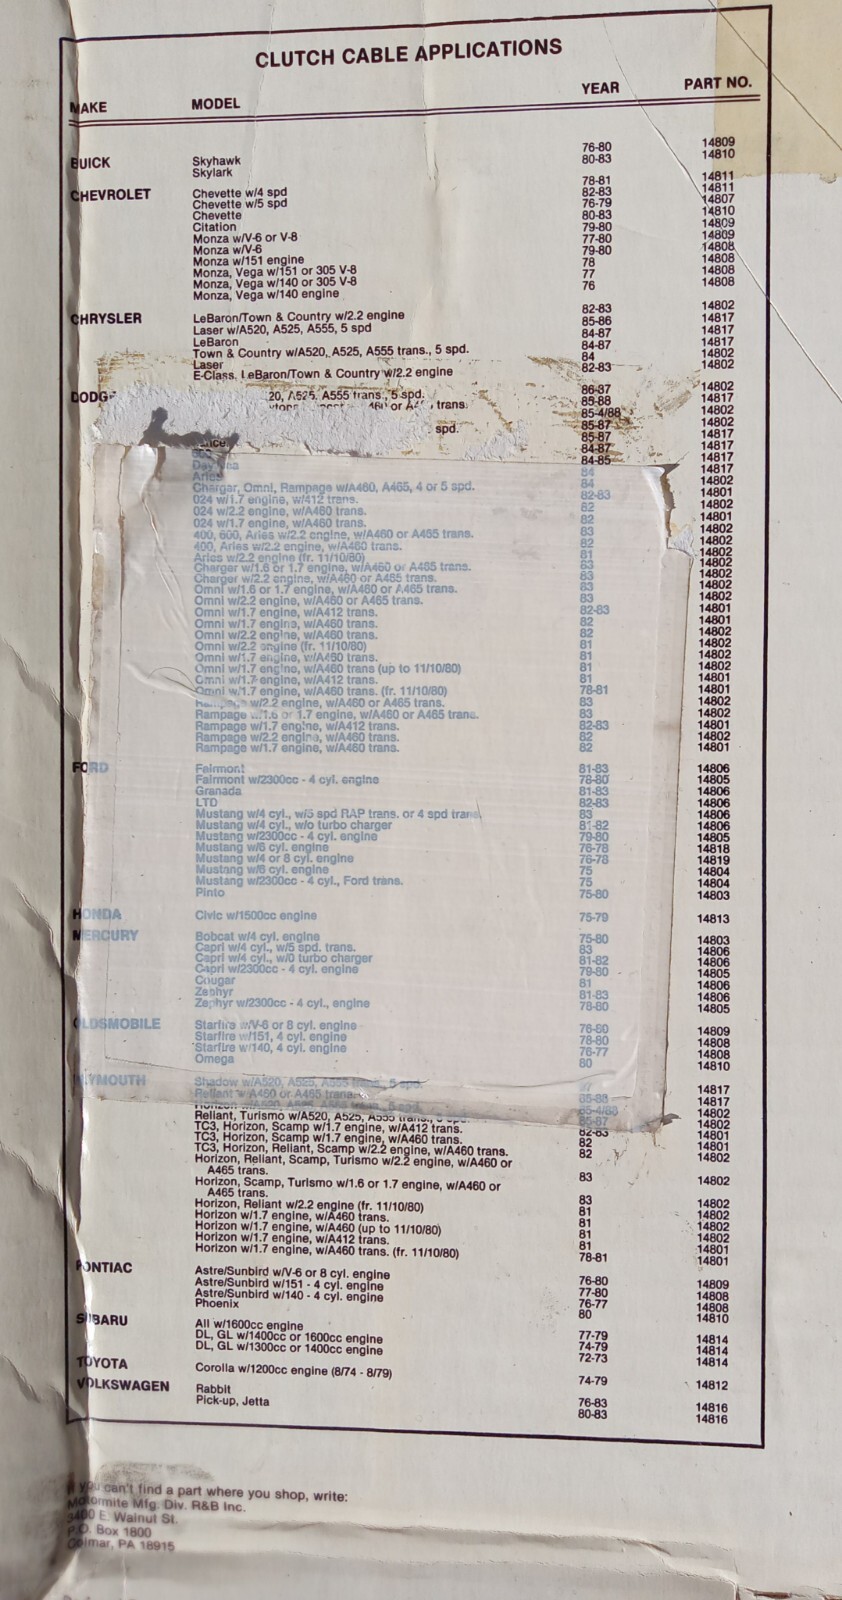 CLUTCH CABLE APPLICATIONS
MAKE MODEL YEAR PART NO.
BUICK Skyhawk 76-80 14809
Skylark 80-83 14810
CHEVROLET Chevette w/4 spd 78-81 14811
Chevette w/5 spd 82-83 14811
Chevette 76-79 14807
Citation 80-83 14810
Monza w/V-6 or V-8 79-80 14809
Monza w/V-6 77-80 14809
Monza w/151 engine 79-80 14808
Monza, Vega w/151 or 305 V-8 78 14808
Monza, Vega w/140 or 305 V-8 77 14808
Monza, Vega w/140 engine 76 14808
CHRYSLER LeBaron/Town & Country w/2.2 engine 82-83 14802
Laser w/A520, A525, A555, 5 spd 85-86 14817
LeBaron 84-87 14817
Town & Country w/A520, A525, A555 trans., 5 spd. 84-87 14817
Laser 84 14802
E-Class, LeBaron/Town & Country w/2.2 engine 82-83 14802
DODGE 86-87 14802
A525, A555 trans., 5 spd. 85-88 14817
or trans. 85-4/88 14802
85-87 14802
spd. 85-87 14817
600 84-87 14817
Daytona 84-85 14817
Aries 84 14817
Charger, Omni, Rampage w/A460, A465, 4 or 5 spd. 84 14802
024 w/1.7 engine, w/412 trans. 82-83 14801
024 w/2.2 engine, w/A460 trans. 82
024 w/1.7 engine, w/A460 trans. 82 14801
400, 600, Aries w/2.2 engine, w/A460 or A465 trans. 83 14802
400, Aries w/2.2 engine, w/A460 trans. 82 14802
Aries w/2.2 engine (fr. 11/10/80) 81 14802
Charger w/1.6 or 1.7 engine, w/A460 or A465 trans. 83 14802
Charger w/2.2 engine, w/A460 or A465 trans. 83 14802
Omni w/1.6 or 1.7 engine, w/A460 or A465 trans. 83 14802
Omni w/2.2 engine, w/A460 or A465 trans. 83 14802
Omni w/1.7 engine, w/A412 trans. 82-83 14801
Omni w/1.7 engine, w/A460 trans. 82 14801
Omni w/2.2 engine, w/A460 trans. 82 14802
Omni w/2.2 engine (fr. 11/10/80) 81 14802
Omni w/1.7 engine, w/A460 trans. 81 14802
Omni w/1.7 engine, w/A460 trans (up to 11/10/80) 81 14802
Omni w/1.7 engine, w/A412 trans. 81 14801
Omni w/1.7 engine, w/A460 trans. (fr. 11/10/80) 78-81 14801
Rampage w/2.2 engine, w/A460 or A465 trans. 83 14802
Rampage w/1.6 or 1.7 engine, w/A460 or A465 trans. 83 14802
Rampage w/1.7 engine, w/A412 trans. 82-83 14801
Rampage w/2.2 engine, w/A460 trans. 82 14802
Rampage w/1.7 engine, w/A460 trans. 82 14801
FORD Fairmont 81-83 14806
Fairmont w/2300cc - 4 cyl. engine 78-80 14805
Granada 81-83 14806
LTD 82-83 14806
Mustang w/4 cyl., w/5 spd RAP trans. or 4 spd trans. 83 14806
Mustang w/4 cyl., w/o turbo charger 81-82 14806
Mustang w/2300cc - 4 cyl. engine 79-80 14805
Mustang w/6 cyl. engine 76-78 14818
Mustang w/4 or 8 cyl. engine 76-78 14819
Mustang w/6 cyl. engine 75 14804
Mustang w/2300cc - 4 cyl., Ford trans. 75 14804
Pinto 75-80 14803
HONDA Civic w/1500cc engine 75-79 14813
MERCURY Bobcat w/4 cyl. engine 75-80 14803
Capri w/4 cyl., w/5 spd. trans. 83 14806
Capri w/4 cyl., w/0 turbo charger 81-82 14806
Capri w/2300cc - 4 cyl. engine 79-80 14805
Cougar 81 14806
Zephyr 81-83 14806
Zephyr w/2300cc - 4 cyl., engine 78-80 14805
OLDSMOBILE Starfire w/V-6 or 8 cyl. engine 76-80 14809
Starfire w/151, 4 cyl. engine 78-80 14808
Starfire w/140, 4 cyl. engine 76-77 14808
Omega 80 14810
PLYMOUTH Shadow w/A520, A525, A555 trans., 5 spd. 87 14817
Reliant w/A460 or A465 trans. 85-88 14817
Horizon w/A520, A525, A555 trans., 5 spd. 85-4/88 14802
Reliant, Turismo w/A520, A525, A555 trans., 5 spd. 85-87
TC3, Horizon, Scamp w/1.7 engine, w/A412 trans. 82-83 14801
TC3, Horizon, Scamp w/1.7 engine, w/A460 trans. 82 14801
TC3, Horizon, Reliant, Scamp w/2.2 engine, w/A460 trans. 82 14802
Horizon, Reliant, Scamp, Turismo w/2.2 engine, w/A460 or
A465 trans. 83 14802
Horizon, Scamp, Turismo w/1.6 or 1.7 engine, w/A460 or
A465 trans. 83 14802
Horizon, Reliant w/2.2 engine (fr. 11/10/80) 81 14802
Horizon w/1.7 engine, w/A460 trans. 81 14802
Horizon w/1.7 engine, w/A460 (up to 11/10/80) 81 14802
Horizon w/1.7 engine, w/A412 trans. 81 14801
Horizon w/1.7 engine, w/A460 trans. (fr. 11/10/80) 78-81 14801
PONTIAC Astre/Sunbird w/V-6 or 8 cyl. engine 76-80 14809
Astre/Sunbird w/151 - 4 cyl. engine 77-80 14808
Astre/Sunbird w/140 - 4 cyl. engine 76-77 14808
Phoenix 80 14810
SUBARU All w/1600cc engine 77-79 14814
DL, GL w/1400cc or 1600cc engine 74-79 14814
DL, GL w/1300cc or 1400cc engine 72-73 14814
TOYOTA Corolla w/1200cc engine (8/74 - 8/79) 74-79 14812
VOLKSWAGEN Rabbit 76-83 14816
Pick-up, Jetta 80-83 14816
If you can't find a part where you shop, write:
Motormite Mfg. Div. R&B Inc.
3400 E. Walnut St.
P.O. Box 1800
Colmar, PA 18915